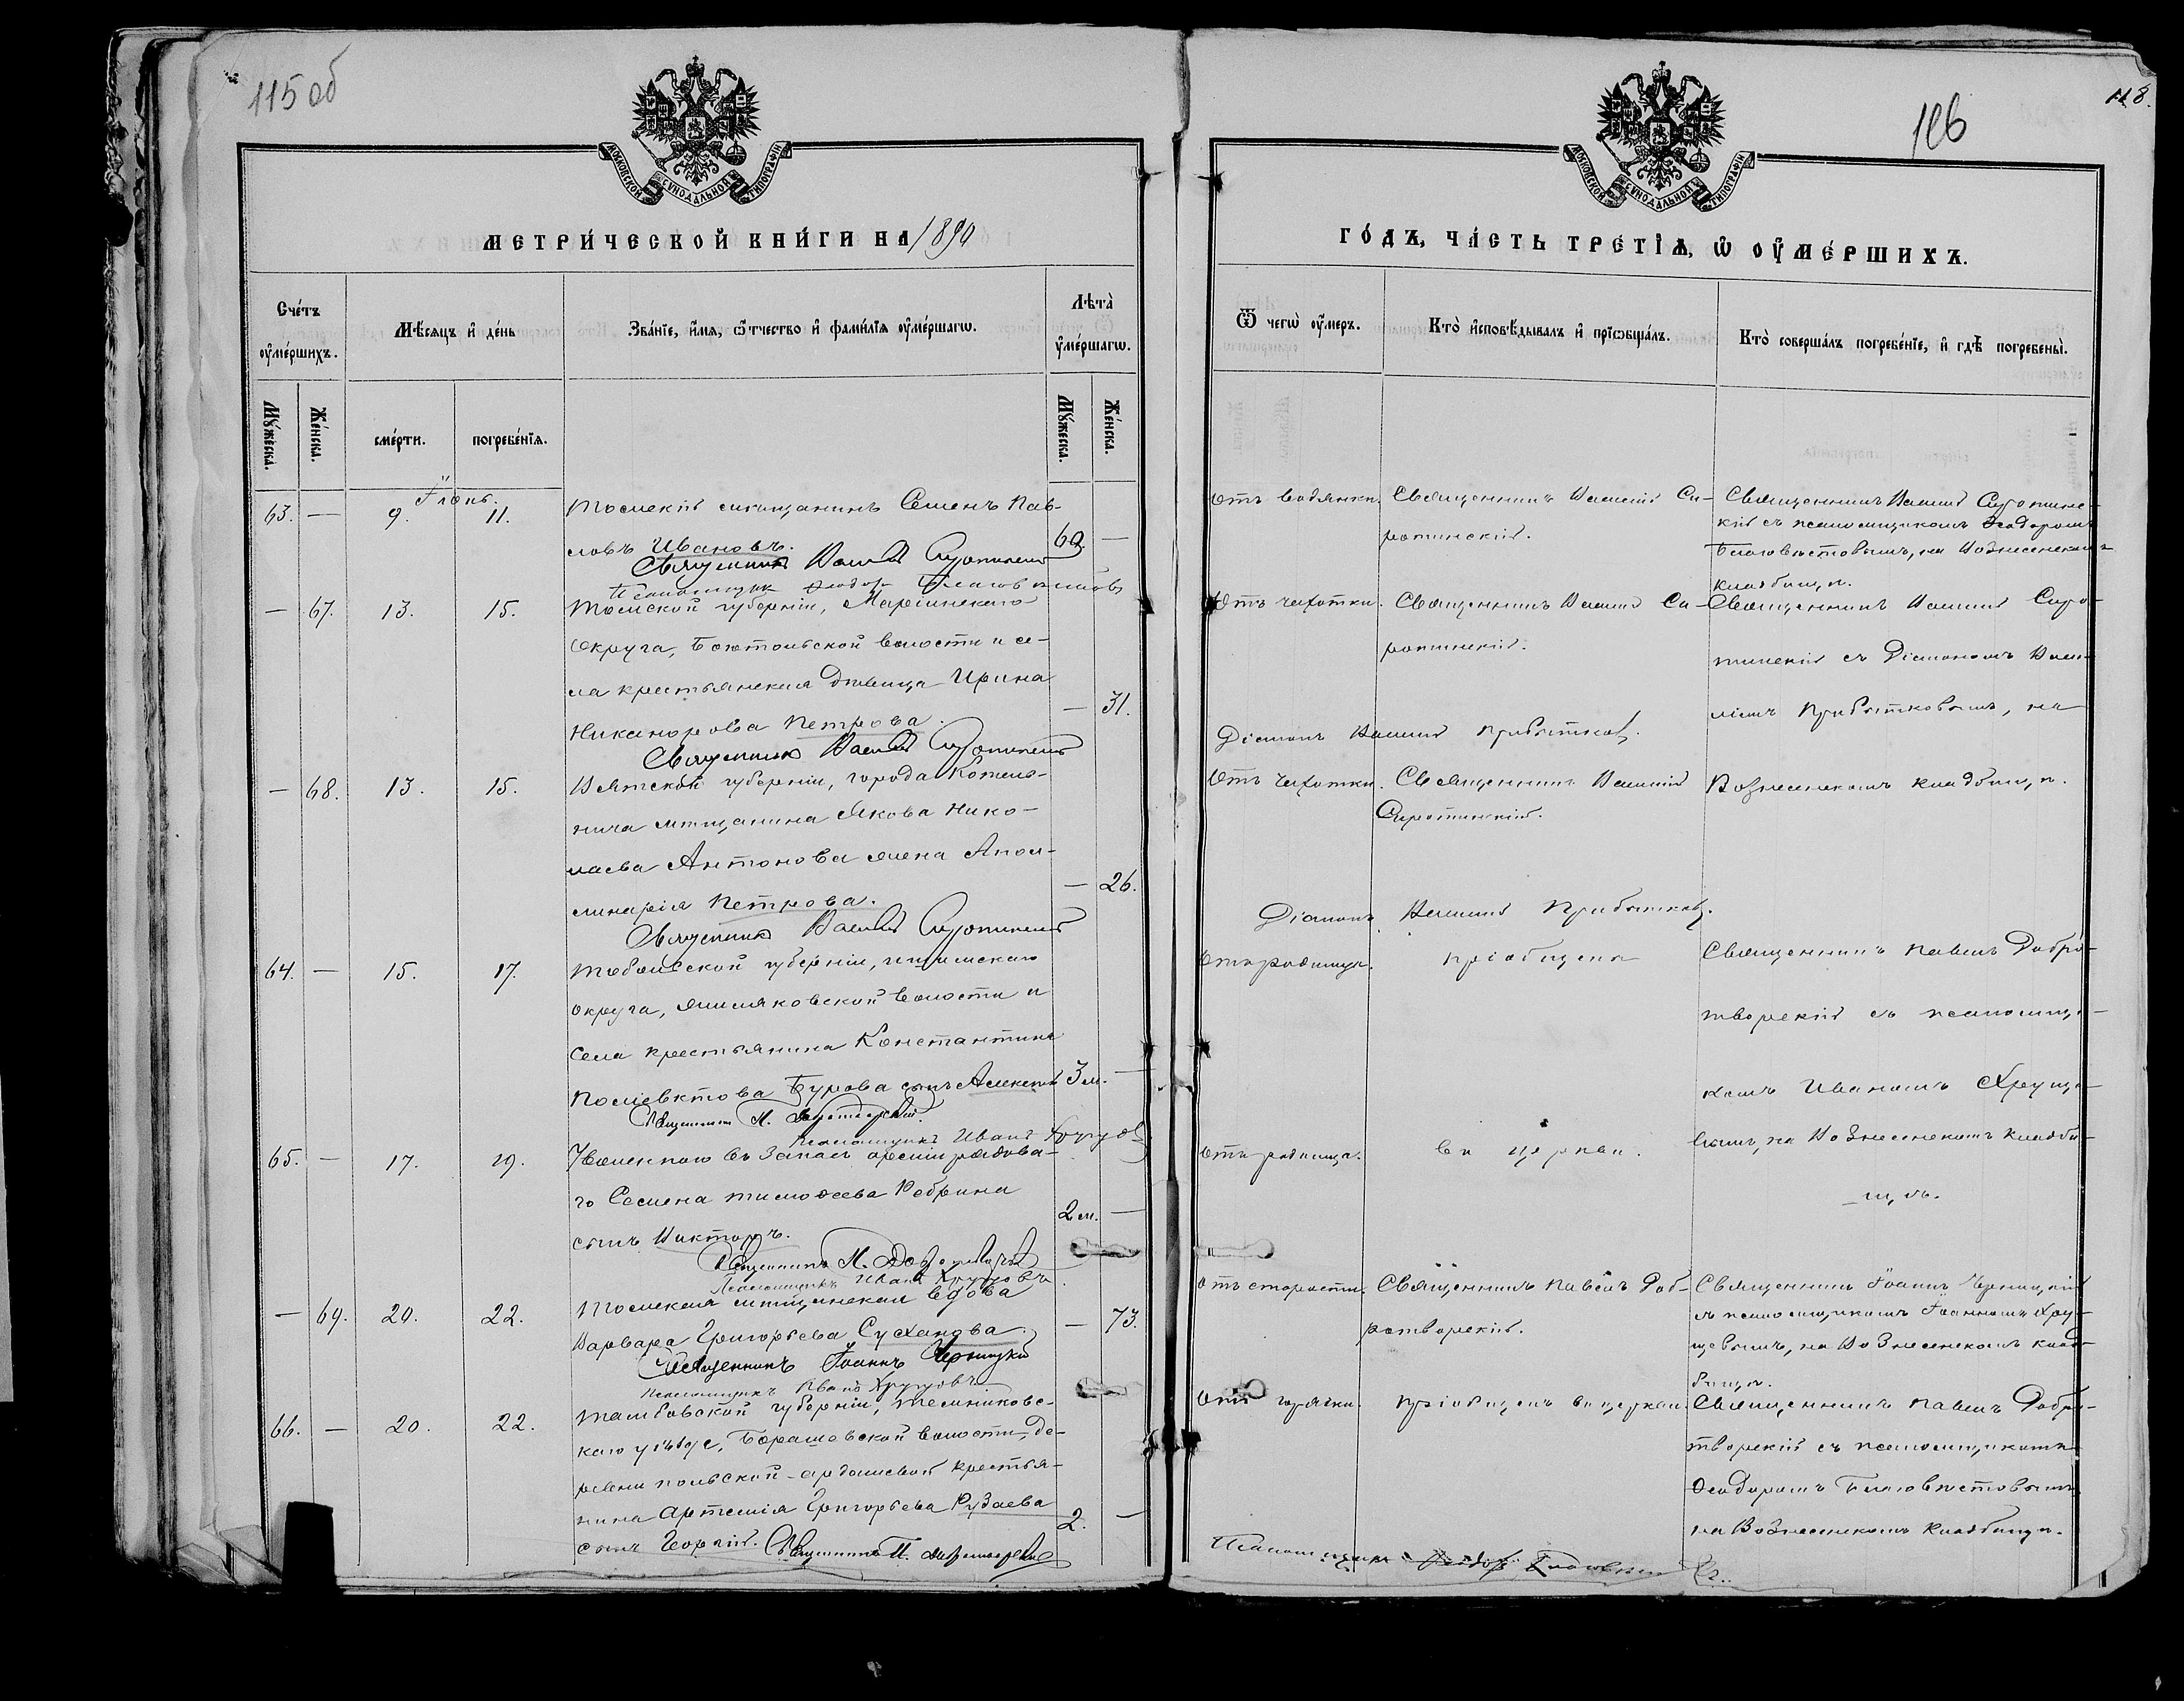 115 об
МОСКОВСКОЙ СѴНОДАЛЬНОЙ ТИПОГРАФІИ
МЕТРИ́ЧЕСКОЙ КНИ́ГИ НА 1890
Сче́тъ ᲂу҆ме́ршихъ.
Мѣ́сяцъ и҆ де́нь
Зва́нїе, и҆́мя, ѻ҆́тчество и҆ фами́лїя ᲂу҆ме́ршагѡ.
Лѣта̀ ᲂу҆ме́ршагѡ.
Мꙋ́жеска.
Же́нска.
сме́рти.
погребе́нїѧ.
Мꙋ́жеска.
Же́нска.
Іюнь.
63. — 9. 11.
Томскій мѣщанинъ Семенъ Пав-
ловъ Ивановъ.
69. —
Священникъ Василій Сиротинскій
Псаломщикъ Ѳеодоръ Благовѣстовъ
— 67. 13. 15.
Томской губерніи, Маріинскаго
округа, Боготольской волости и се-
ла крестьянская дѣвица Ирина
Никанорова Петрова.
— 31.
Священникъ Василій Сиротинскій
— 68. 13. 15.
Вятской губерніи, города Котель-
нича мѣщанина Якова Нико-
лаева Антонова жена Апол-
линарія Петрова.
— 26.
Священникъ Василій Сиротинскій
64. — 15. 17.
Тобольской губерніи, Ишимскаго
округа, волости и
села крестьянина Константина
Поліевктова Бурова сынъ Алексѣй
3 м. —
Священникъ П. Добротворскій.
Псаломщикъ Иванъ Хрущовъ
65. — 17. 19.
Уволеннаго въ запасъ арміи рядова-
го Семена Тимоѳеева Ребрина
сынъ Викторъ.
2 м. —
Священникъ П. Добротворскій
Псаломщикъ Иванъ Хрущовъ
— 69. 20. 22.
Томская мѣщанская вдова
Варвара Григорьева Суханова.
— 73.
Священникъ Іоаннъ Черницкій
Псаломщикъ Иванъ Хрущовъ
66. — 20. 22.
Тамбовской губерніи, Темниковс-
каго уѣзда, Борашевской волости, де-
ревни крестья-
нина Артемія Григорьева Рузаева
сынъ Георгій.
2. —
Священникъ П. Добротворскій
118.
116
МОСКОВСКОЙ СѴНОДАЛЬНОЙ ТИПОГРАФІИ
ГО́ДЪ, ЧА́СТЬ ТРЕ́ТІѦ, Ѡ҆ ОУ҆МЕ́РШИХЪ.
Ѿ чегѡ̀ ᲂу҆́меръ.
Кто̀ и҆сповѣ́дывалъ и҆ прїѡбща́лъ.
Кто̀ соверша́лъ погребе́нїе, и҆ гдѣ̀ погребены̀.
Отъ водянки.
Священникъ Василій Си-
ротинскій.
Священникъ Василій Сиротинс-
кій съ псаломщикомъ Ѳеодоромъ
Благовѣстовымъ, на Вознесенскомъ
кладбищѣ.
Отъ чахотки.
Священникъ Василій Си-
ротинскій.
Священникъ Василій Сиро-
тинскій съ Діакономъ Васи-
ліемъ Прибытковымъ, на
Діаконъ Василій Прибытковъ.
Отъ чахотки.
Священникъ Василій
Сиротинскій.
Вознесенскомъ кладбищѣ.
Діаконъ Василій Прибытковъ.
Отъ родимца.
пріобщенъ
Священникъ Павелъ Добро-
творскій съ псаломщи-
комъ Иваномъ Хрущо-
вымъ, на Вознесенскомъ кладби-
щѣ.
Отъ родимца.
въ церкви.
Отъ старости.
Священникъ Павелъ Доб-
ротворскій.
Священникъ Іоаннъ Черницкій
съ псаломщикомъ Іоанномъ Хру-
щевымъ, на Вознесенскомъ клад-
бищѣ.
Отъ горячки.
Пріобщенъ въ церкви.
Священникъ Павелъ Добро-
творскій съ псаломщикомъ
Ѳеодоромъ Благовѣстовымъ
на Вознесенскомъ кладбищѣ.
Псаломщикъ Ѳеодоръ Благовѣстовъ